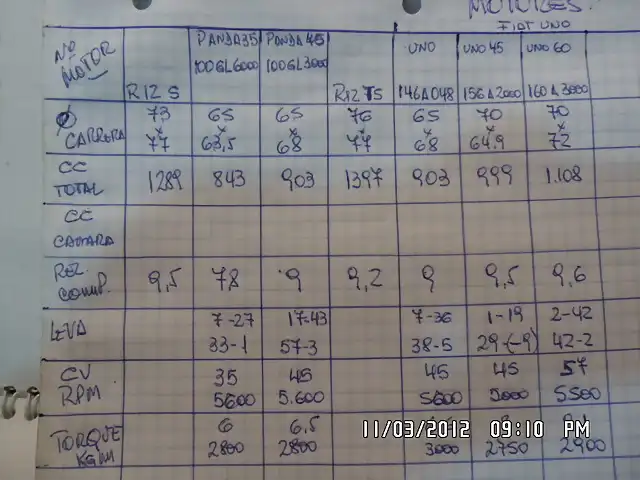 MOTORES.
FIAT UNO
Nº MOTOR
R12 S
PANDA 35 100GL6000
PANDA 45 100GL3000
R12 TS
UNO 146A048
UNO 45 156A2000
UNO 60 160A3000
Ø x CARRERA 73 x 77 65 x 63,5 65 x 68 76 x 77 65 x 68 70 x 64.9 70 x 72
CC TOTAL 1289 843 903 1397 903 999 1.108
CC CAMARA
REL. COMP. 9,5 78 9 9,2 9 9,5 9,6
LEVA 7-27 17-43 7-36 1-19 2-42
33-1 57-3 38-5 29-(-9) 42-2
CV 35 45 45 45 57
RPM 5600 5.600 5600 5000 5500
TORQUE 6 6,5
KGM 2800 2800 3000 2750 2900
11/03/2012 09:10 PM